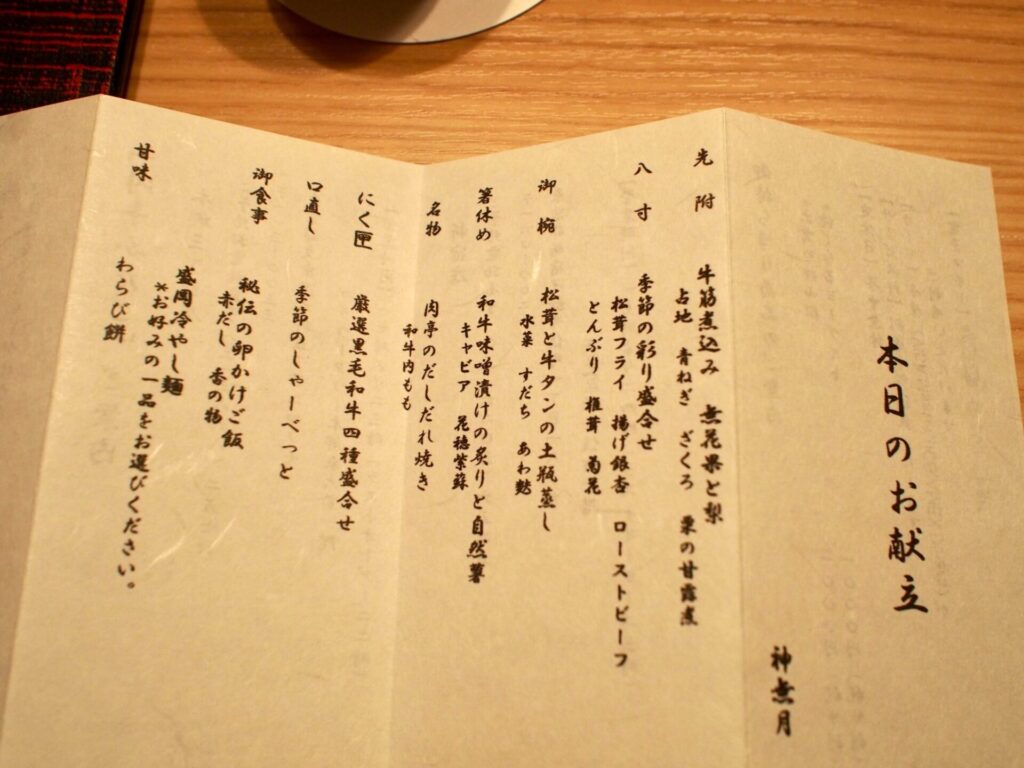 本日のお献立
神無月
先附 牛筋煮込み 無花果と梨
占地 青ねぎ ざくろ 栗の甘露煮
八寸 季節の彩り盛合せ
松茸フライ 揚げ銀杏 ローストビーフ
とんぶり 椎茸 菊花
御椀 松茸と牛タンの土瓶蒸し
水菜 すだち あわ麩
箸休め 和牛味噌漬けの炙りと自然薯
キャビア 花穂紫蘇
名物 肉亭のだしだれ焼き
和牛内もも
にく匣 厳選黒毛和牛四種盛合せ
口直し 季節のしゃーべっと
御食事 秘伝の卵かけご飯
赤だし 香の物
盛岡冷やし麺
*お好みの一品をお選びください。
甘味 わらび餅